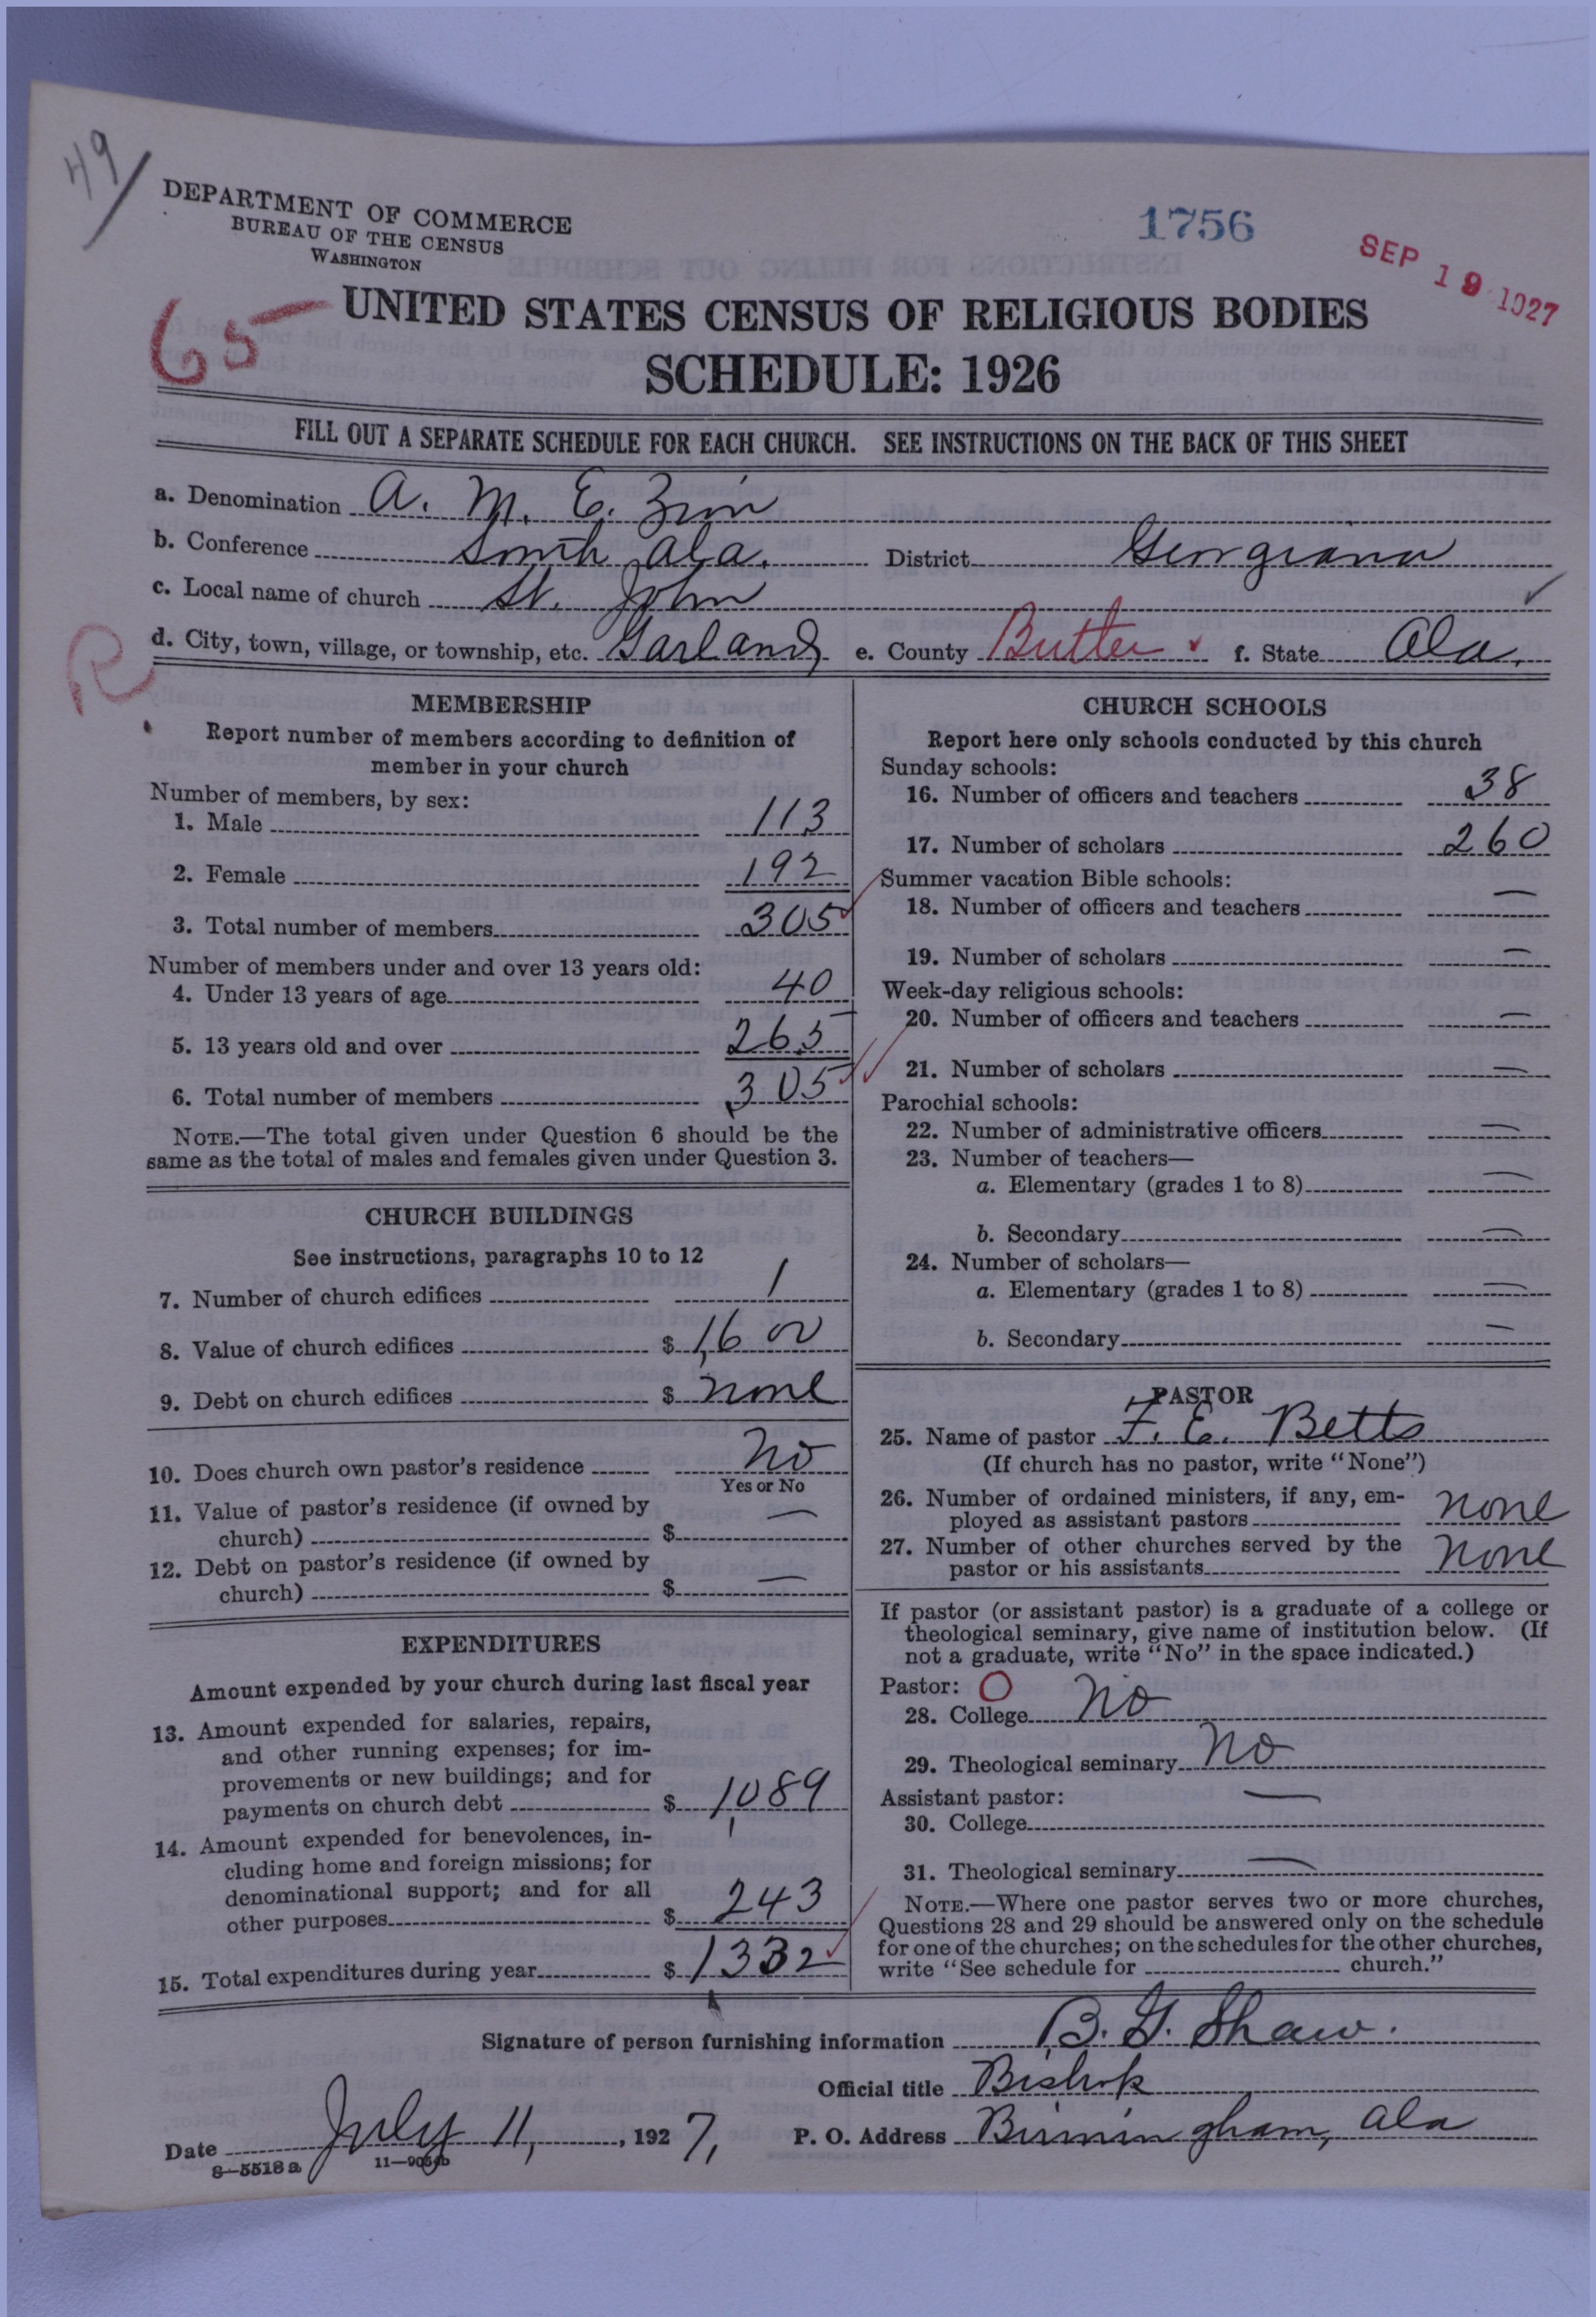 49/
DEPARTMENT OF COMMERCE
BUREAU OF THE CENSUS
WASHINGTON
1756
SEP 19 1927
65
UNITED STATES CENSUS OF RELIGIOUS BODIES
SCHEDULE: 1926
FILL OUT A SEPARATE SCHEDULE FOR EACH CHURCH. SEE INSTRUCTIONS ON THE BACK OF THIS SHEET
a. Denomination A. M. E. Zion
b. Conference South Ala. District Georgiana
c. Local name of church St. John
R
d. City, town, village, or township, etc. Garland e. County Butler f. State Ala.
MEMBERSHIP
Report number of members according to definition of
member in your church
Number of members, by sex:
1. Male 113
2. Female 192
3. Total number of members 305
Number of members under and over 13 years old:
4. Under 13 years of age 40
5. 13 years old and over 265
6. Total number of members 305
NOTE.—The total given under Question 6 should be the
same as the total of males and females given under Question 3.
CHURCH BUILDINGS
See instructions, paragraphs 10 to 12
7. Number of church edifices 1
8. Value of church edifices $ 1600
9. Debt on church edifices $ none
10. Does church own pastor's residence No
Yes or No
11. Value of pastor's residence (if owned by
church) $ —
12. Debt on pastor's residence (if owned by
church) $ —
EXPENDITURES
Amount expended by your church during last fiscal year
13. Amount expended for salaries, repairs,
and other running expenses; for im-
provements or new buildings; and for
payments on church debt $ 1089
14. Amount expended for benevolences, in-
cluding home and foreign missions; for
denominational support; and for all
other purposes $ 243
15. Total expenditures during year $ 1332
CHURCH SCHOOLS
Report here only schools conducted by this church
Sunday schools:
16. Number of officers and teachers 38
17. Number of scholars 260
Summer vacation Bible schools:
18. Number of officers and teachers —
19. Number of scholars —
Week-day religious schools:
20. Number of officers and teachers —
21. Number of scholars —
Parochial schools:
22. Number of administrative officers —
23. Number of teachers—
a. Elementary (grades 1 to 8) —
b. Secondary —
24. Number of scholars—
a. Elementary (grades 1 to 8) —
b. Secondary —
PASTOR
25. Name of pastor F. E. Betts
(If church has no pastor, write "None")
26. Number of ordained ministers, if any, em-
ployed as assistant pastors none
27. Number of other churches served by the
pastor or his assistants none
If pastor (or assistant pastor) is a graduate of a college or
theological seminary, give name of institution below. (If
not a graduate, write "No" in the space indicated.)
Pastor: O
28. College No
29. Theological seminary No
Assistant pastor: —
30. College
31. Theological seminary —
NOTE.—Where one pastor serves two or more churches,
Questions 28 and 29 should be answered only on the schedule
for one of the churches; on the schedules for the other churches,
write "See schedule for church."
Signature of person furnishing information B. G. Shaw.
Official title Bishop
Date July 11, 1927, P. O. Address Birmingham, Ala
8—5518a 11—9054b